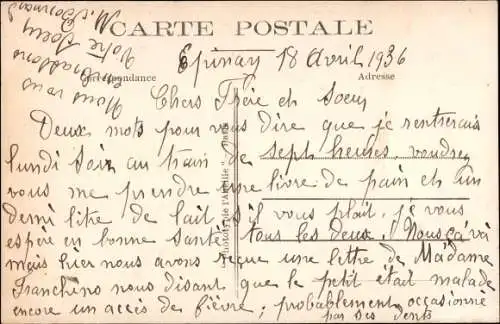 CARTE POSTALE
Correspondance
Adresse
Epinay 18 Avril 1936
Chers Frère et Soeur
Deux mots pour vous dire que je rentrerais
lundi soir au train de sept heures, voudrez
vous me prendre une livre de pain et un
demi litre de lait s'il vous plait. je vous
espère en bonne santé tous les deux. Nous ça va
mais hier nous avons reçue une lettre de Madame
Franchino nous disant que le petit était malade
encore un accès de fièvre; probablement occasionné
par ses dents
Nous vous
embrassons
Votre Soeur
M.